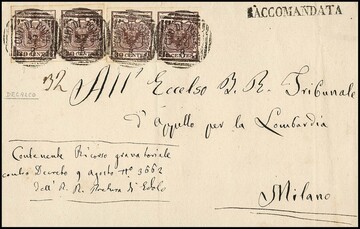 RACCOMANDATA
30 CENT
32
All' Eccelso I. R. Tribunale
d'Appello per la Lombardia
Contenente Ricorso gravatoriale
contro Decreto 9 agosto N° 3662
dell' I. R. Pretura di Edolo
Milano